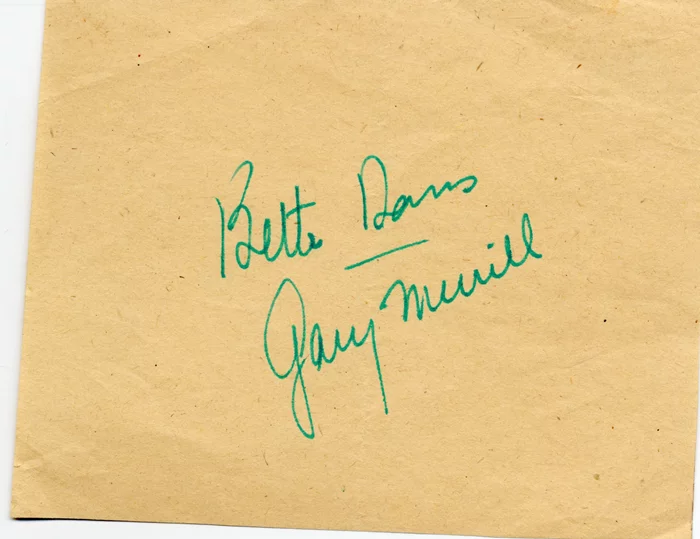 Bette Davis
Gary Merrill